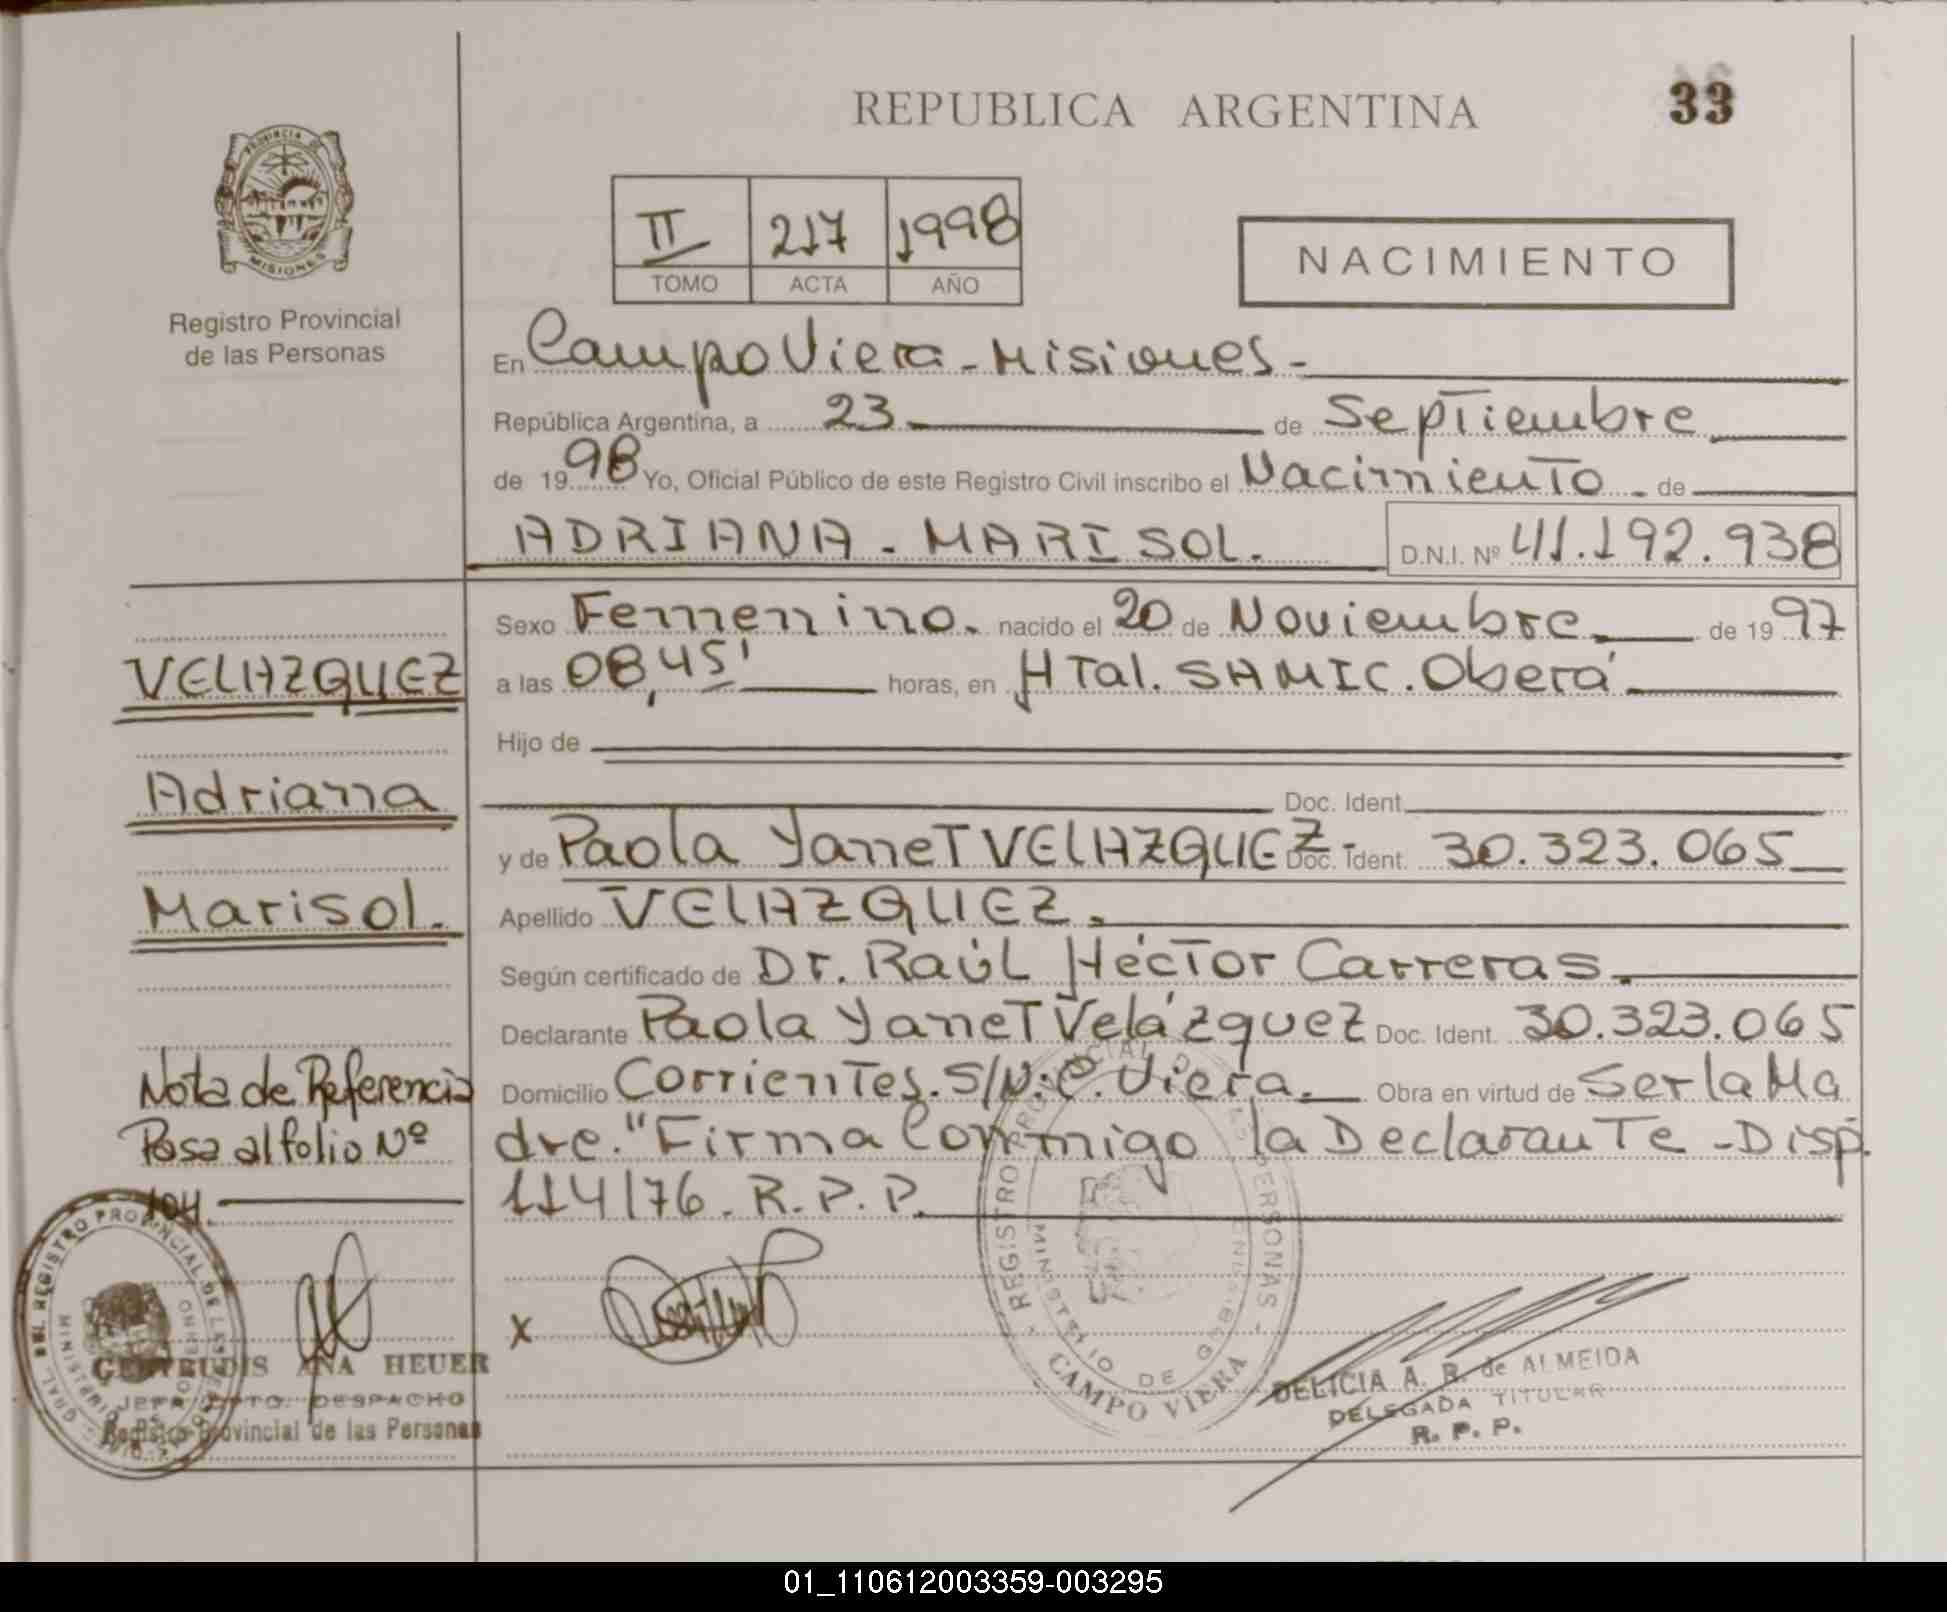 REPUBLICA ARGENTINA
33
PROVINCIA DE
MISIONES
Registro Provincial
de las Personas
II 217 1998
TOMO ACTA AÑO
NACIMIENTO
En Campo Viera - Misiones -
República Argentina, a 23 de Septiembre
de 1998 Yo, Oficial Público de este Registro Civil inscribo el Nacimiento - de
ADRIANA - MARISOL. D.N.I. Nº 41.192.938
Sexo Femenino. nacido el 20 de Noviembre de 1997
a las 08,45' horas, en HTal. SAMIC. Oberá
Hijo de
Doc. Ident.
y de Paola Yanet VELAZQUEZ - Doc. Ident. 30.323.065
Apellido VELAZQUEZ.
Según certificado de Dr. Raúl Héctor Carreras.
Declarante Paola Yanet Velázquez Doc. Ident. 30.323.065
Domicilio Corrientes. S/N. C. Viera. Obra en virtud de Ser la Ma
dre. "Firma Conmigo la Declarante - Disp.
114/76. R.P.P.
VELAZQUEZ
Adriana
Marisol.
Nota de Referencia
Pasa al folio Nº
104.
x
REGISTRO PROVINCIAL DE LAS PERSONAS
MINISTERIO DE GOBIERNO
CAMPO VIERA
GERTRUDIS ANA HEUER
JEFA DPTO. DESPACHO
Registro Provincial de las Personas
DELICIA A. R. de ALMEIDA
DELEGADA TITULAR
R. P. P.
01_110612003359-003295